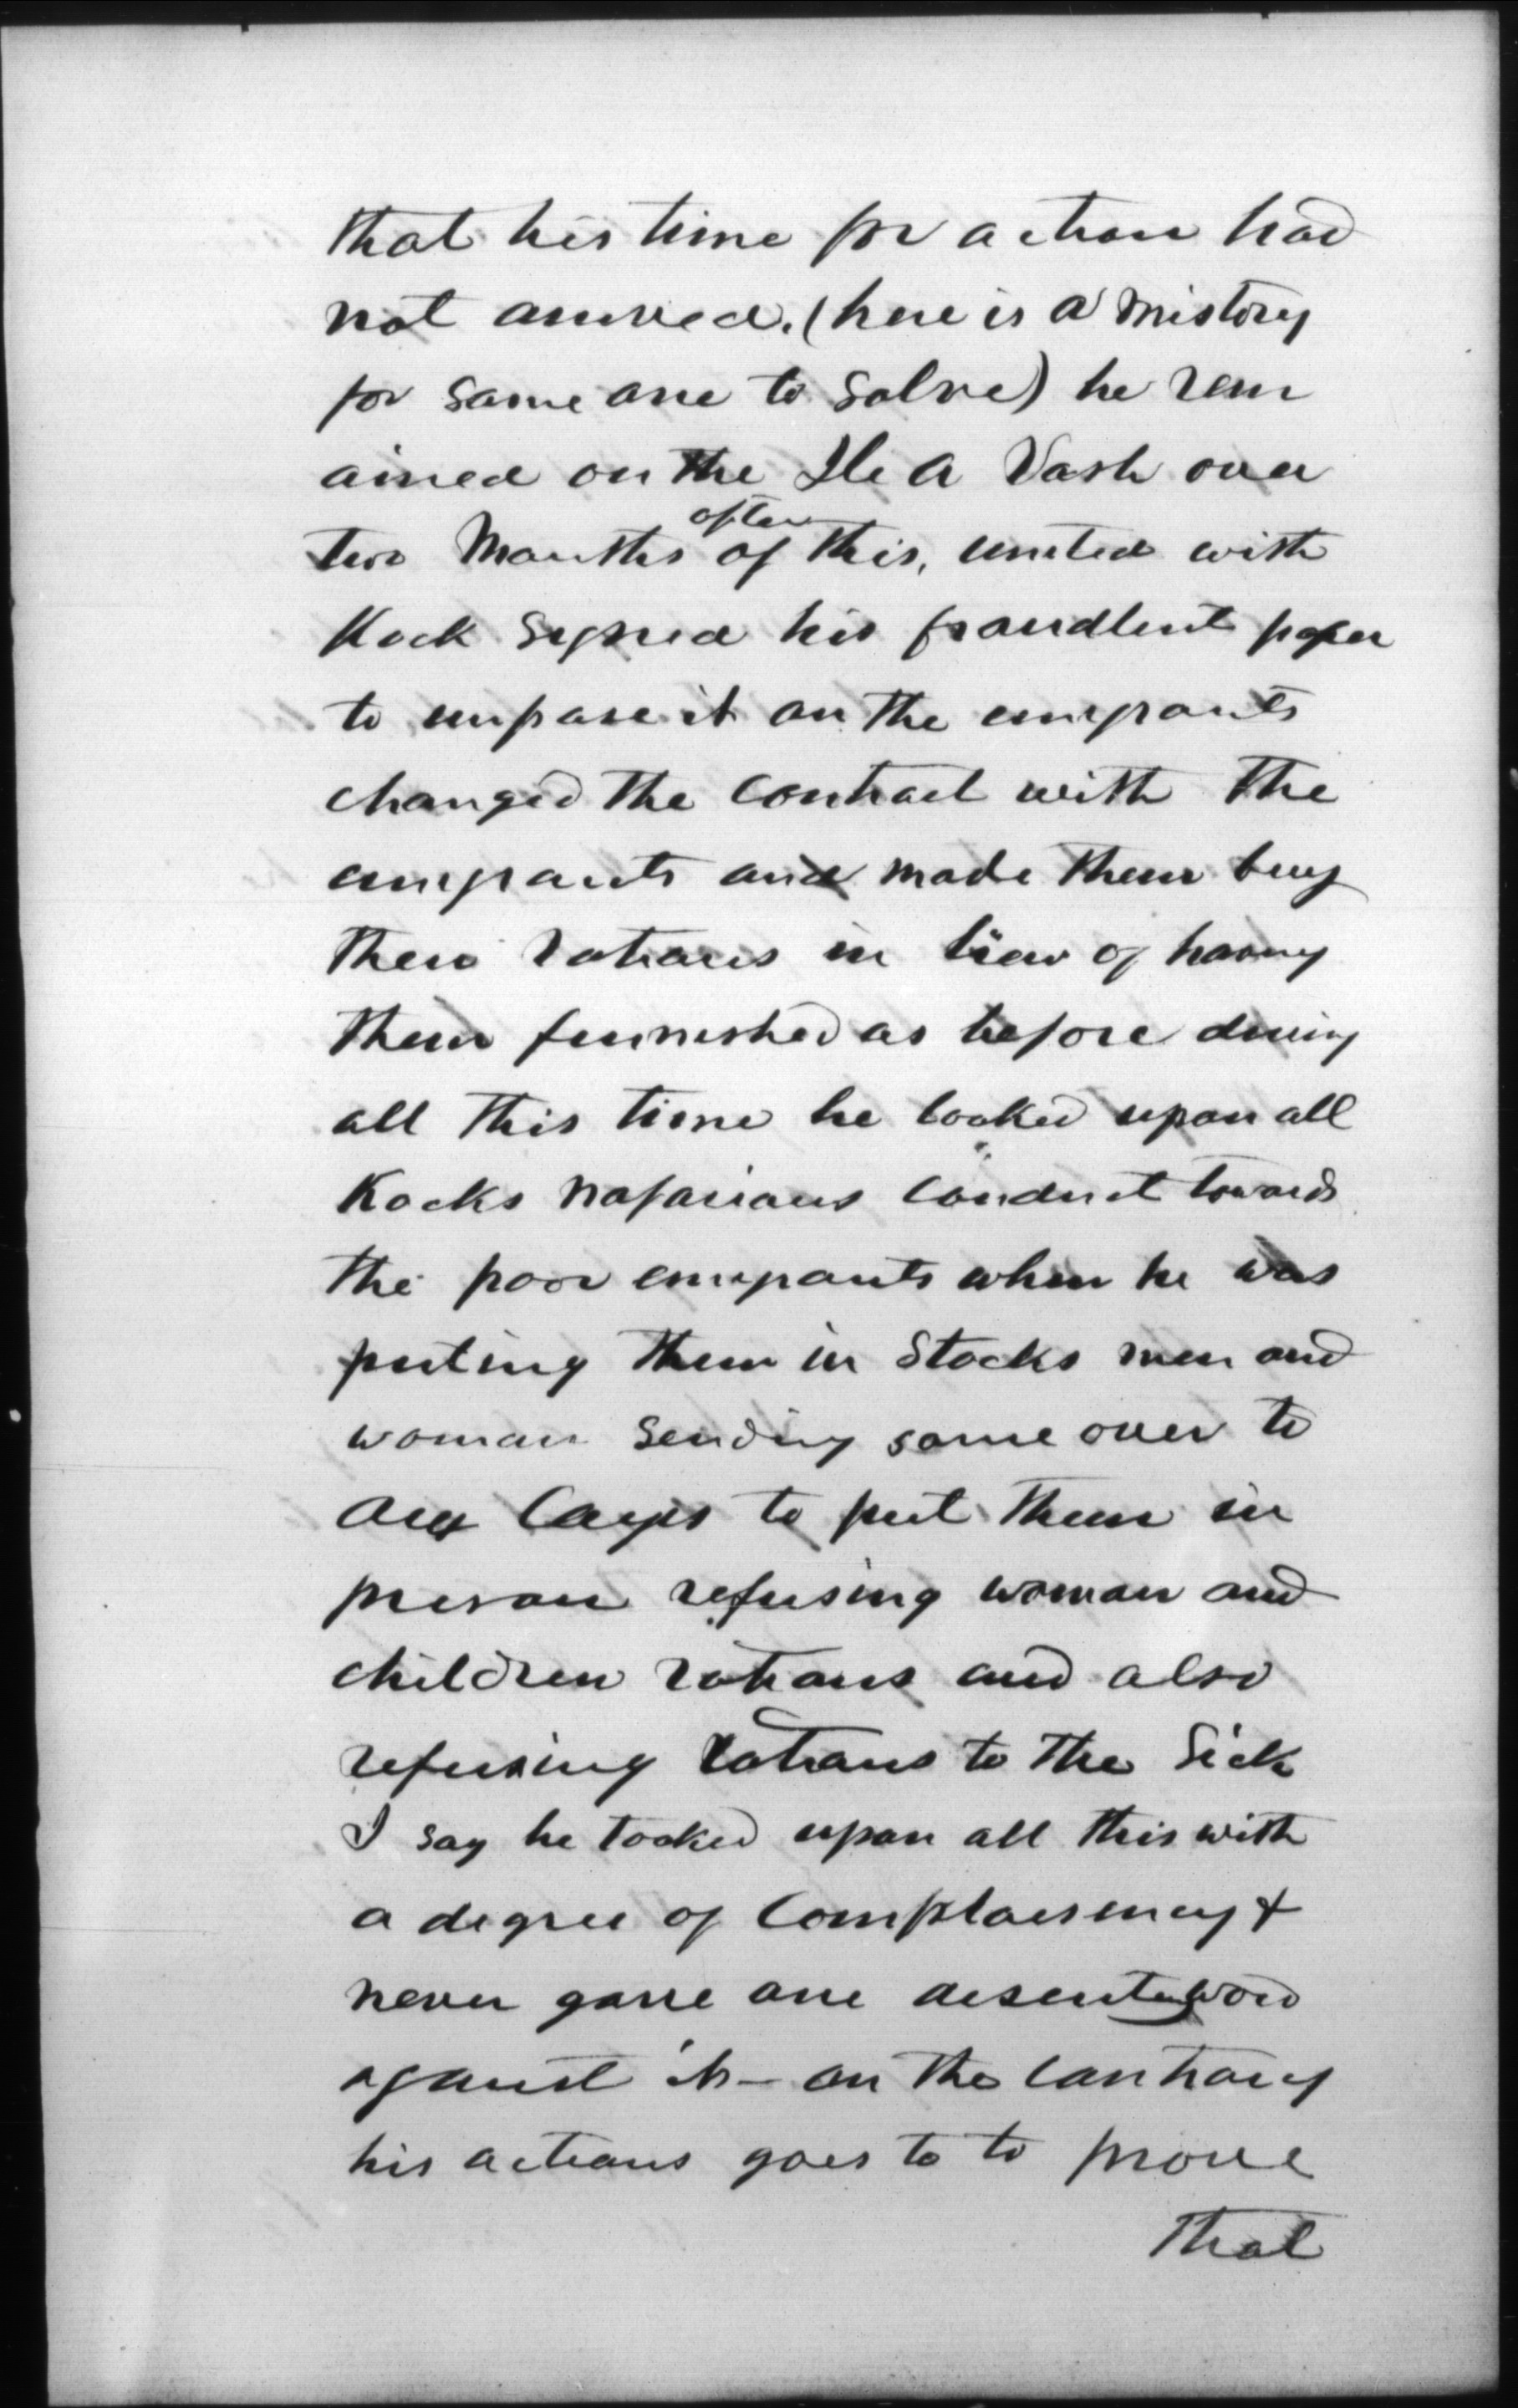 that his time for action had
not arrived. (here is a mistory
for some one to solve) he rem
ained on the Ile A Vash over
after
two Months of this, united with
Kock signed his fraudlent paper
to impose it on the emigrants
changed the contract with the
emigrants and made them buy
their rations in liew of having
them furnished as before during
all this time he looked upon all
Kocks nafarious conduct towards
the poor emigrants when he was
puting them in Stocks men and
woman sending some over to
Aux Cayes to put them in
prison refusing woman and
children rations and also
refusing rations to the Sick
I say he looked upon all this with
a degree of complaisency &
never gave one desenting word
against it – on the contrary
his actions goes to to prove
that